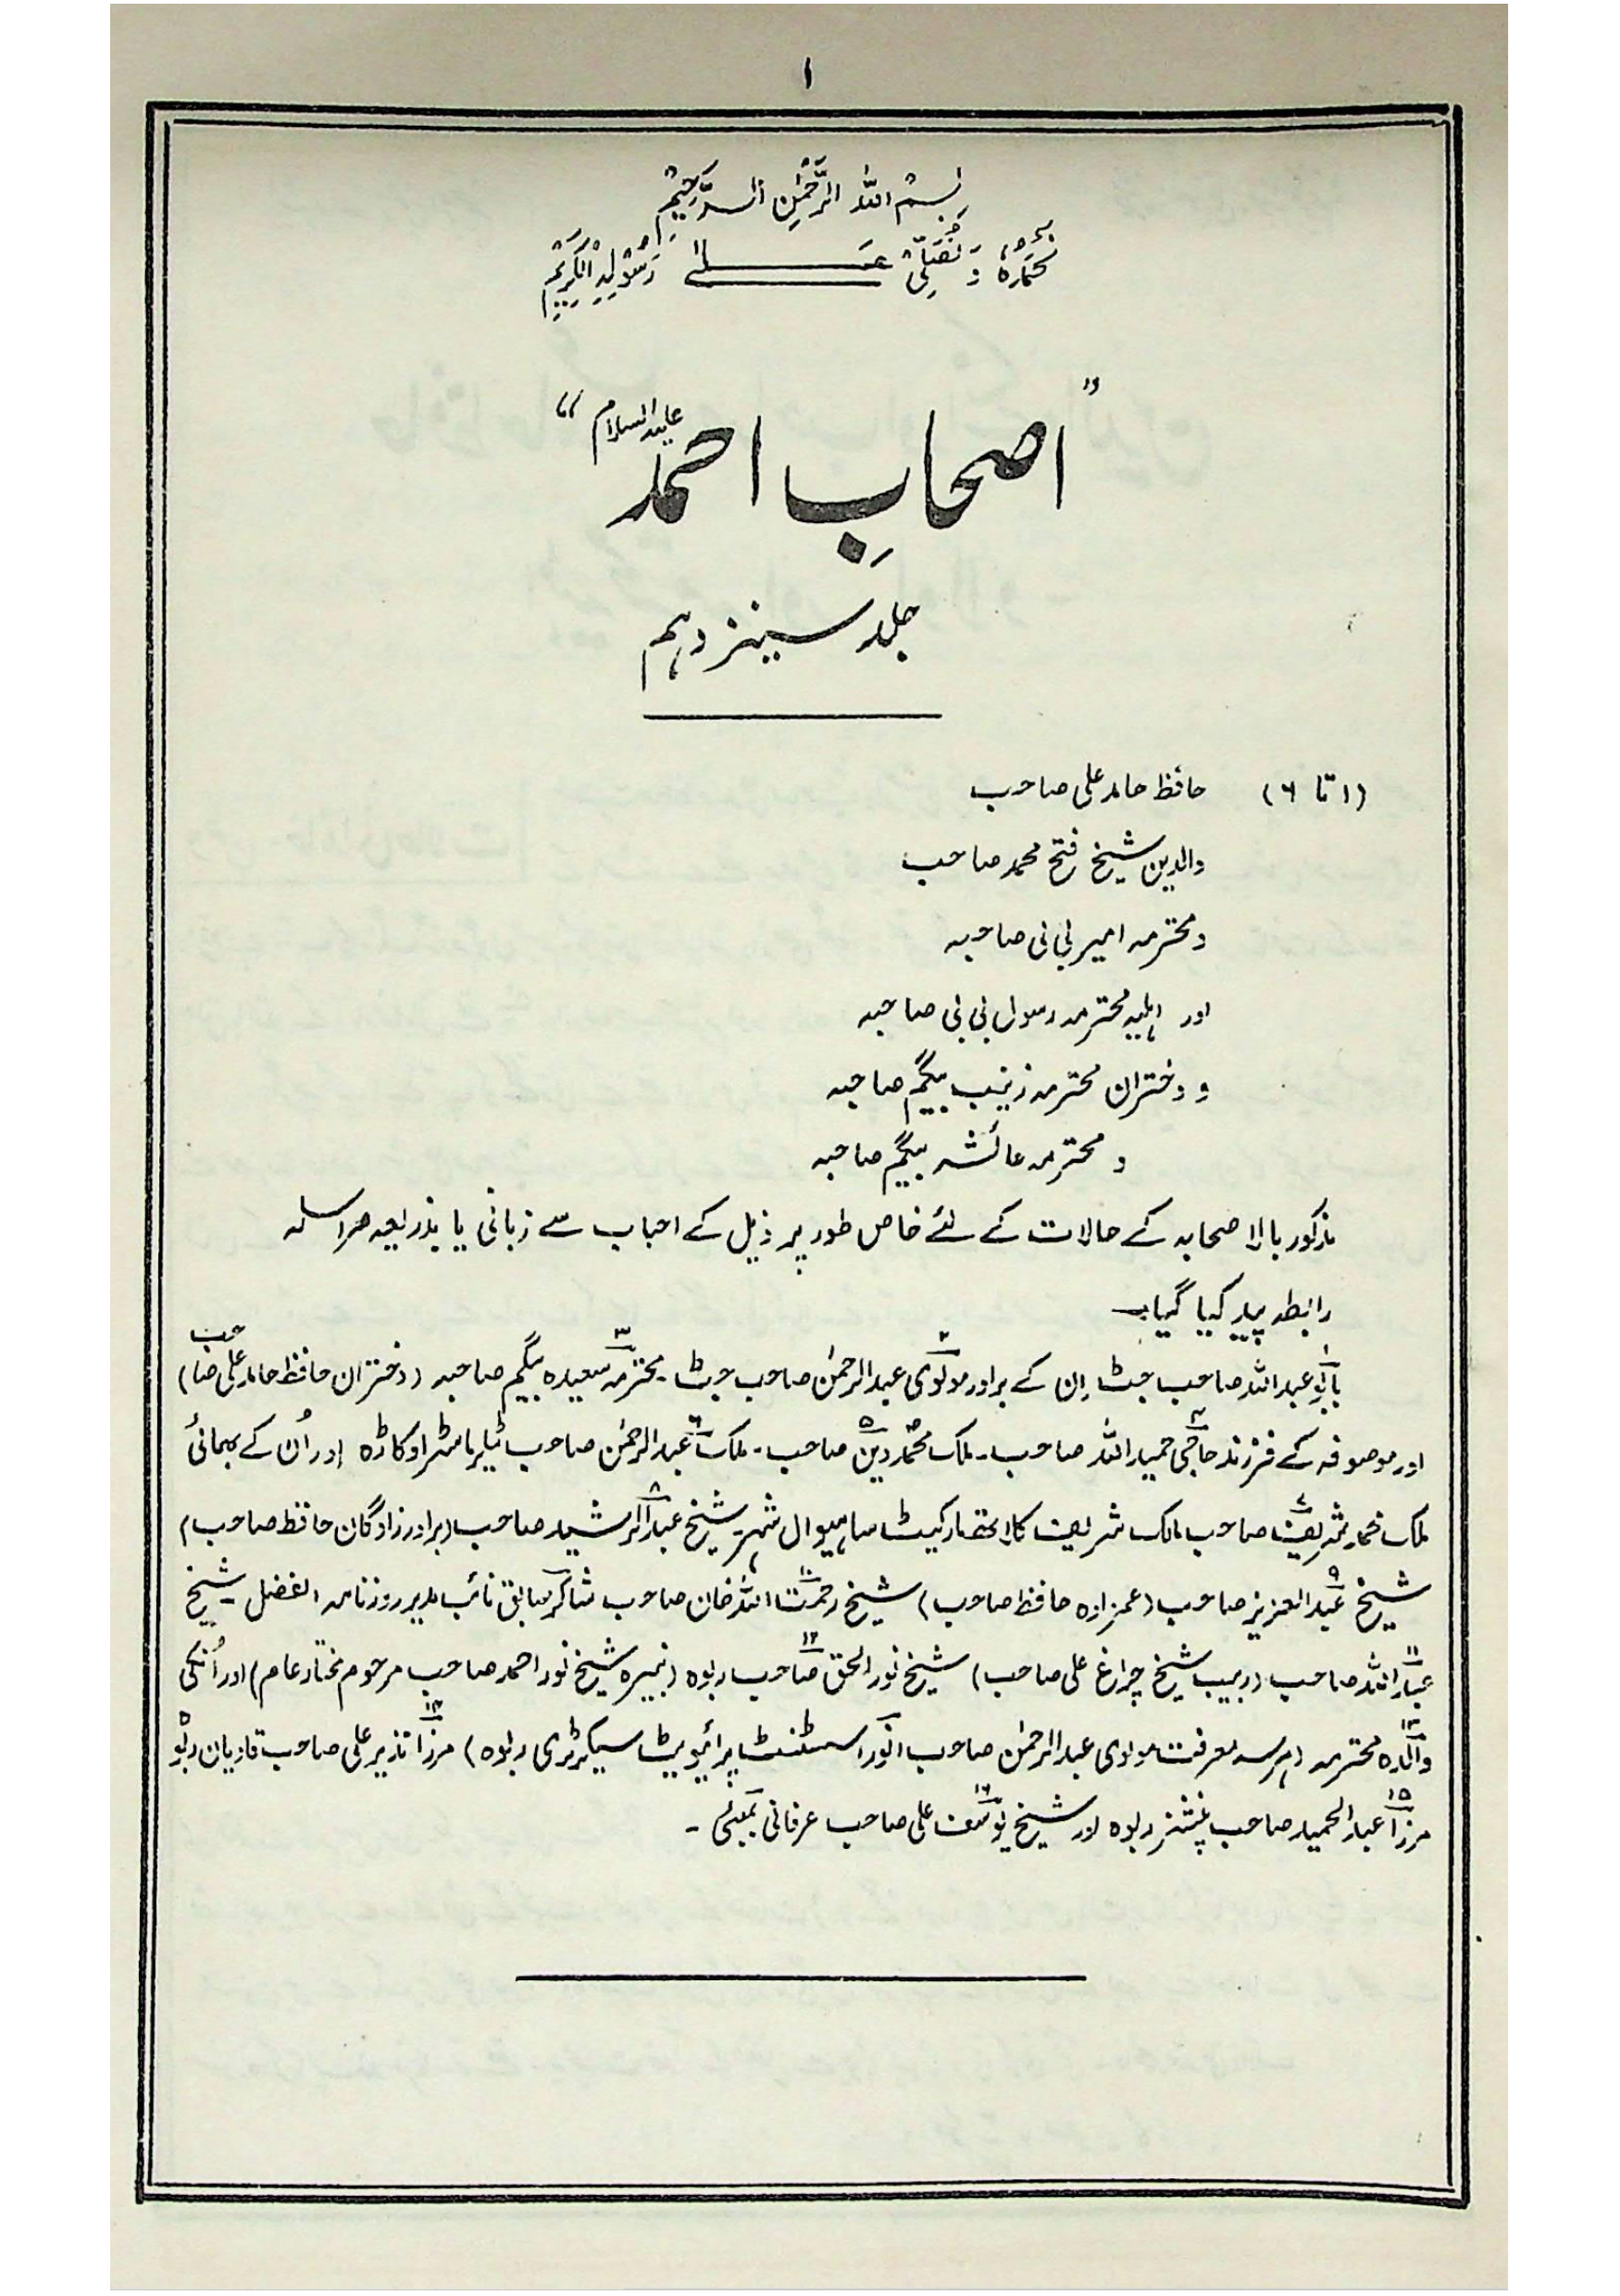 ۱
بِسْمِ اللّٰہِ الرَّحْمٰنِ الرَّحِیْمِ
نَحْمَدُہٗ وَ نُصَلِّیْ عَلٰی رَسُوْلِہِ الْکَرِیْمِ
"اصحابِ احمد علیہ السلام"
جلد سینزدہم
(۱ تا ۶) حافظ حامد علی صاحب
والدین شیخ فتح محمد صاحب
و محترمہ امیر بی بی صاحبہ
اور اہلیہ محترمہ رسول بی بی صاحبہ
و دختران محترمہ زینب بیگم صاحبہ
و محترمہ عائشہ بیگم صاحبہ
مذکور بالا صحابہ کے حالات کے لئے خاص طور پر ذیل کے احباب سے زبانی یا بذریعہ مراسلہ
رابطہ پیدا کیا گیا۔
بابو۱ عبد اللہ صاحب جٹ ان کے برادر مولوی۲ عبد الرحمٰن صاحب جٹ۔ محترمہ۳ سعیدہ بیگم صاحبہ (دختران حافظ حامد علی صاحب)
اور موصوفہ کے فرزند حاجی۴ حمید اللہ صاحب۔ ملک محمد دین۵ صاحب۔ ملک۶ عبد الرحمٰن صاحب ٹیلر ماسٹر اوکاڑہ اور اُن کے بھائی
ملک محمد شریف۷ صاحب مالک شریف کلاتھ مارکیٹ ساہیوال شہر۔ شیخ عبد۸ الرشید صاحب (برادر زادگان حافظ صاحب)
شیخ عبد۹ العزیز صاحب (عمزادہ حافظ صاحب) شیخ رحمت۱۰ اللہ خان صاحب شاکر سابق نائب مدیر روزنامہ الفضل۔ شیخ
عبد۱۱ اللہ صاحب (ربیب شیخ چراغ علی صاحب) شیخ نور الحق صاحب۱۲ ربوہ (نبیرہ شیخ نور احمد صاحب مرحوم مختار عام) اور اُنکی
والدہ۱۳ محترمہ (ہر سہ معرفت مولوی عبد الرحمٰن صاحب انور اسسٹنٹ پرائیویٹ سیکرٹری ربوہ) مرزا۱۴ نذیر علی صاحب قادیان ربوہ
مرزا۱۵ عبد الحمید صاحب پنشنر ربوہ اور شیخ یوسف۱۶ علی صاحب عرفانی بمبئی۔